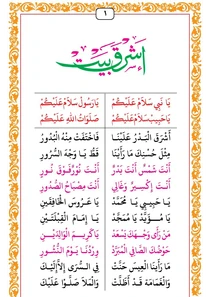 ١
أشرق بيت
يَا نَبِي سَلَامْ عَلَيْكُمْ يَارَسُولْ سَلَامْ عَلَيْكُمْ
يَا حَبِيبْ سَلَامْ عَلَيْكُمْ صَلَوَاتُ اللهِ عَلَيْكُمْ
أَشْرَقَ الْبَدْرُ عَلَيْنَا فَاخْتَفَتْ مِنْهُ الْبُدُورُ
مِثْلَ حُسْنِكَ مَا رَأَيْنَا قَطُّ يَا وَجْهَ السُّرُورِ
أَنْتَ شَمْسٌ أَنْتَ بَدْرٌ أَنْتَ نُورٌ فَوْقَ نُورٍ
أَنْتَ إِكْسِيرٌ وَغَالِي أَنْتَ مِصْبَاحُ الصُّدُورِ
يَا حَبِيبِي يَا مُحَمَّدْ يَا عَرُوسَ الْخَافِقَيْنِ
يَا مُؤَيَّدْ يَا مُمَجَّدْ يَا إِمَامَ الْقِبْلَتَيْنِ
مَنْ رَأَى وَجْهَكَ يَسْعَدْ يَا كَرِيمَ الْوَالِدَيْنِ
حَوْضُكَ الصَّافِي الْمُبَرَّدْ وِرْدُنَا يَوْمَ النُّشُورِ
مَا رَأَيْنَا الْعِيسَ حَنَّتْ فِي السُّرَى إِلَّا إِلَيْكَ
وَالْغَمَامَهْ قَدْ أَظَلَّتْ وَالْمَلَا صَلُّوا عَلَيْكَ